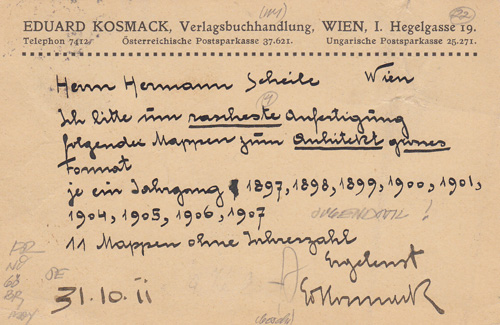 (MY) (22)
EDUARD KOSMACK, Verlagsbuchhandlung, WIEN, I. Hegelgasse 19.
Telephon 7412. Österreichische Postsparkasse 37.621. Ungarische Postsparkasse 25.271.
Herrn Hermann Scheile Wien
Ich bitte um rascheste Anfertigung
folgender Mappen zum Architekt
Format
je ein Jahrgang 1897, 1898, 1899, 1900, 1901,
1904, 1905, 1906, 1907
JUGENDSTIL!
11 Mappen ohne Jahreszahl
Ergebenst
EdKosmack
31.10.11